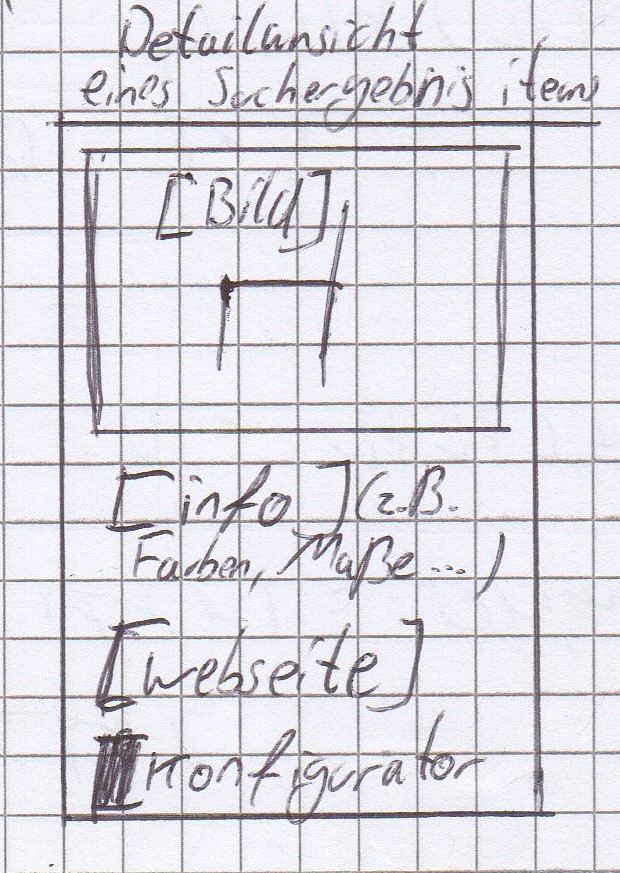 Detailansicht
eines Suchergebnis items
[Bild]
[info] (z.B.
Farben, Maße...)
[webseite]
Konfigurator